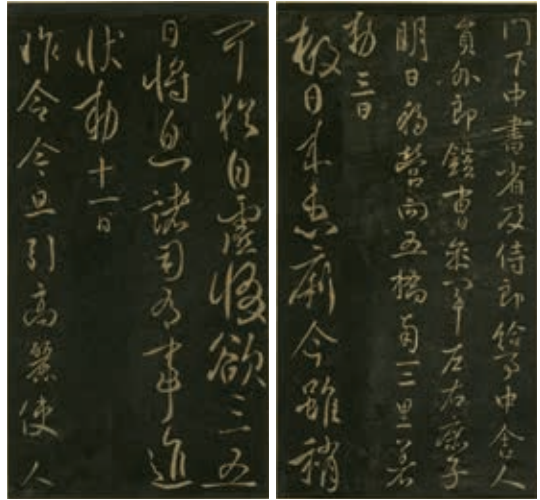 門下中書省及侍郎給事中舍人
員外郎鎧曹參軍左右庶子
明日移營向五橋南一二里着
勅 三日
敕日來患痢今雖稍
可猶自虛惙欲三五
日將息諸司有事進
狀勅十一日
昨令今旦引高麗使人